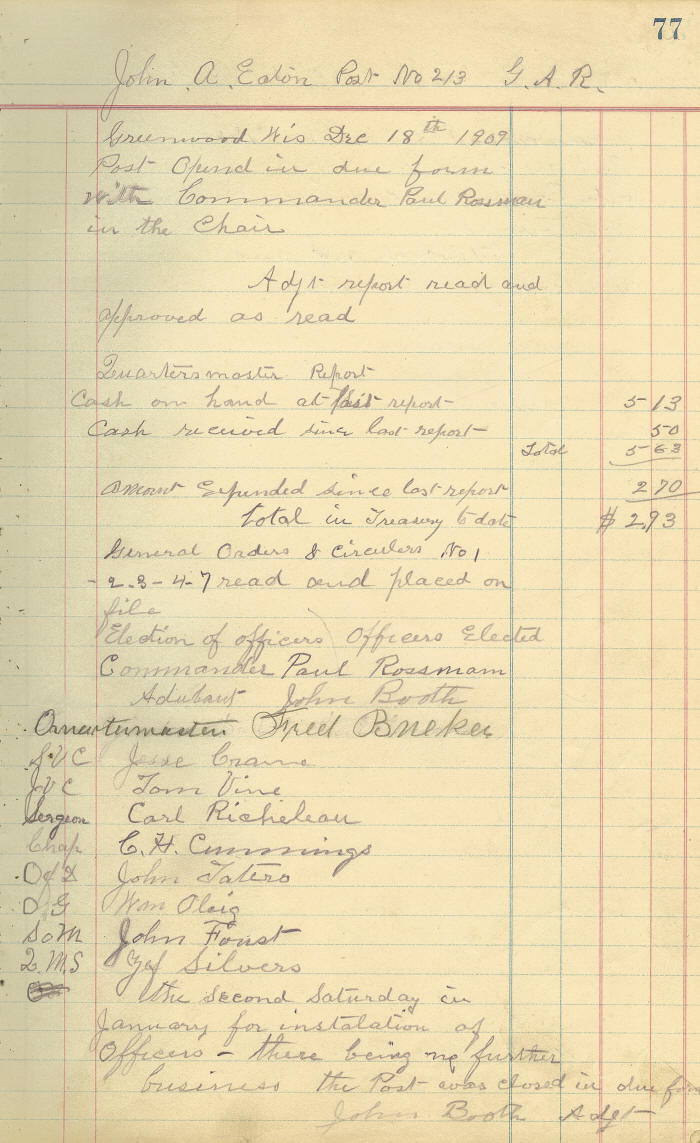 77
John A. Eaton Post No 213 G. A. R.
Greenwood Wis Dec 18th 1909
Post Opend in due form
with Commander Paul Rossman
in the Chair
Adjt report read and
approved as read
Quartersmaster Report
Cash on hand at last report 5 13
Cash received since last report 50
Total 5 63
Amount Expended since last report 2 70
total in Treasury to date $ 2,93
General Orders & Circulers No 1
- 2-3-4-7 read and placed on
file
Election of officers Officers Elected
Commander Paul Rossmam
Adubant John Booth
Fred Bueker
S.V.C Jesse Crame
J.V C Tom Vine
Sergeon Carl Richeleau
Chap C. H. Cummings
O of D John Tatero
O G Wm Oleig
S o M John Foust
Q.M.S Silvers
the second Saturday in
January for instalation of
Officers - there being no further
business the Post was closed in due form
John Booth Adgt